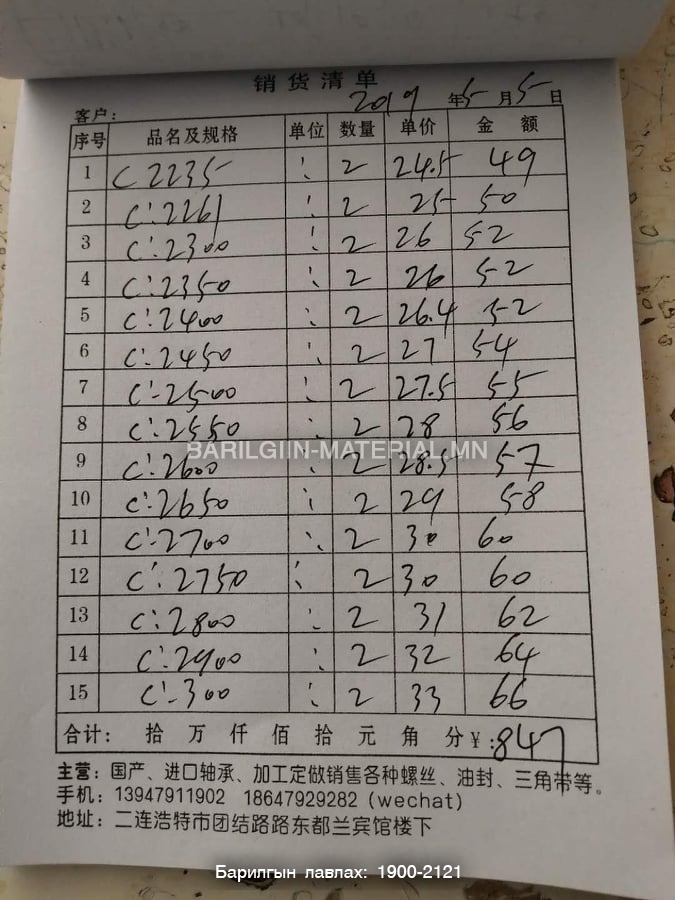 销货清单
2019 年 5 月 5 日
客户：
序号 品名及规格 单位 数量 单价 金额
1 C 2235 2 24.5 49
2 C: 2261 2 25 50
3 C: 2300 2 26 52
4 C: 2350 2 26 52
5 C: 2400 2 26.4 52
6 C: 2450 2 27 54
7 C: 2500 2 27.5 55
8 C: 2550 2 28 56
BARILGIIN-MATERIAL.MN
9 C: 2600 2 28.5 57
10 C: 2650 2 29 58
11 C: 2700 2 30 60
12 C: 2750 2 30 60
13 C: 2800 2 31 62
14 C: 2900 2 32 64
15 C: 300 2 33 66
合计： 拾 万 仟 佰 拾 元 角 分 ¥：847
主营：国产、进口轴承、加工定做销售各种螺丝、油封、三角带等。
手机：13947911902 18647929282 (wechat)
地址：二连浩特市团结路路东都兰宾馆楼下
Барилгын лавлах: 1900-2121